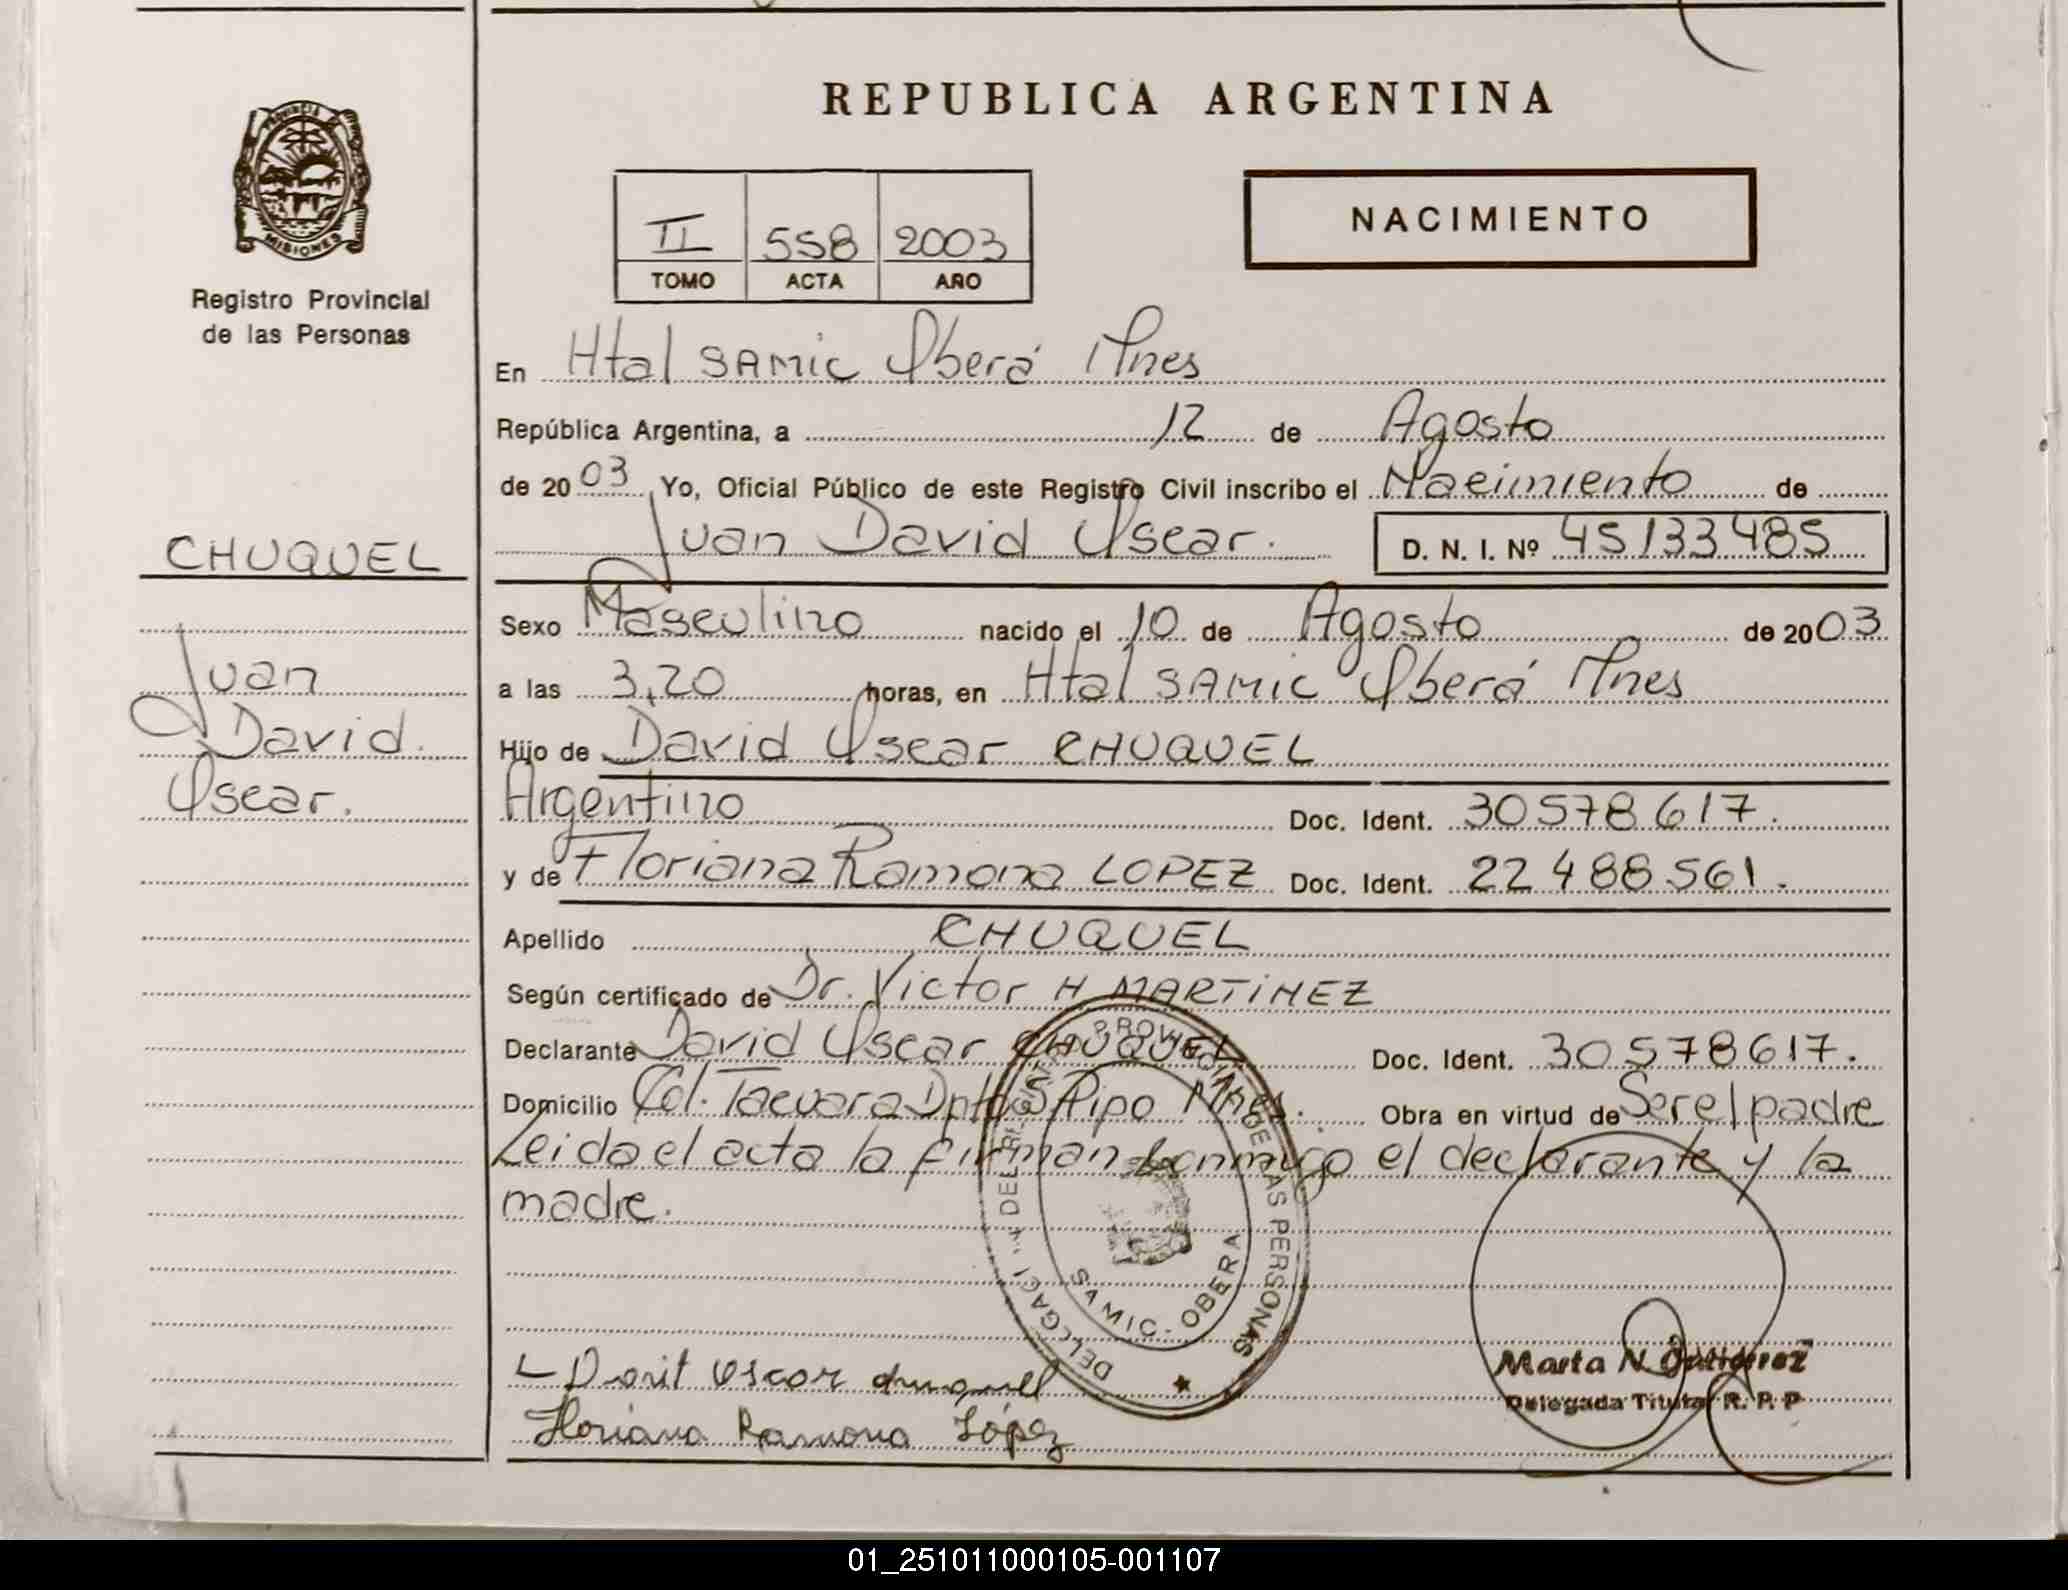 REPUBLICA ARGENTINA
PROVINCIA
MISIONES
Registro Provincial
de las Personas
II 558 2003
TOMO ACTA AÑO
NACIMIENTO
En Htal SAMIC Oberá Mnes
República Argentina, a 12 de Agosto
de 2003 Yo, Oficial Público de este Registro Civil inscribo el Nacimiento de
Juan David Oscar. D. N. I. Nº 45133485
CHUQUEL
Juan
David
Oscar.
Sexo Masculino nacido el 10 de Agosto de 2003
a las 3,20 horas, en Htal SAMIC Oberá Mnes
Hijo de David Oscar CHUQUEL
Argentino Doc. Ident. 30578617.
y de Floriana Ramona LOPEZ Doc. Ident. 22488561.
Apellido CHUQUEL
Según certificado de Dr. Victor H MARTINEZ
Declarante David Oscar CHUQUEL Doc. Ident. 30578617.
Domicilio Col. Tacuara Dpto S Pipo Mnes. Obra en virtud de Ser el padre
Leida el acta la firman conmigo el declarante y la
madre.
SAMIC - OBERA
DE LAS PERSONAS
Davit Oscar chuquel
Floriana Ramona López
Marta N Gutierrez
Delegada Titular R. P. P
01_251011000105-001107